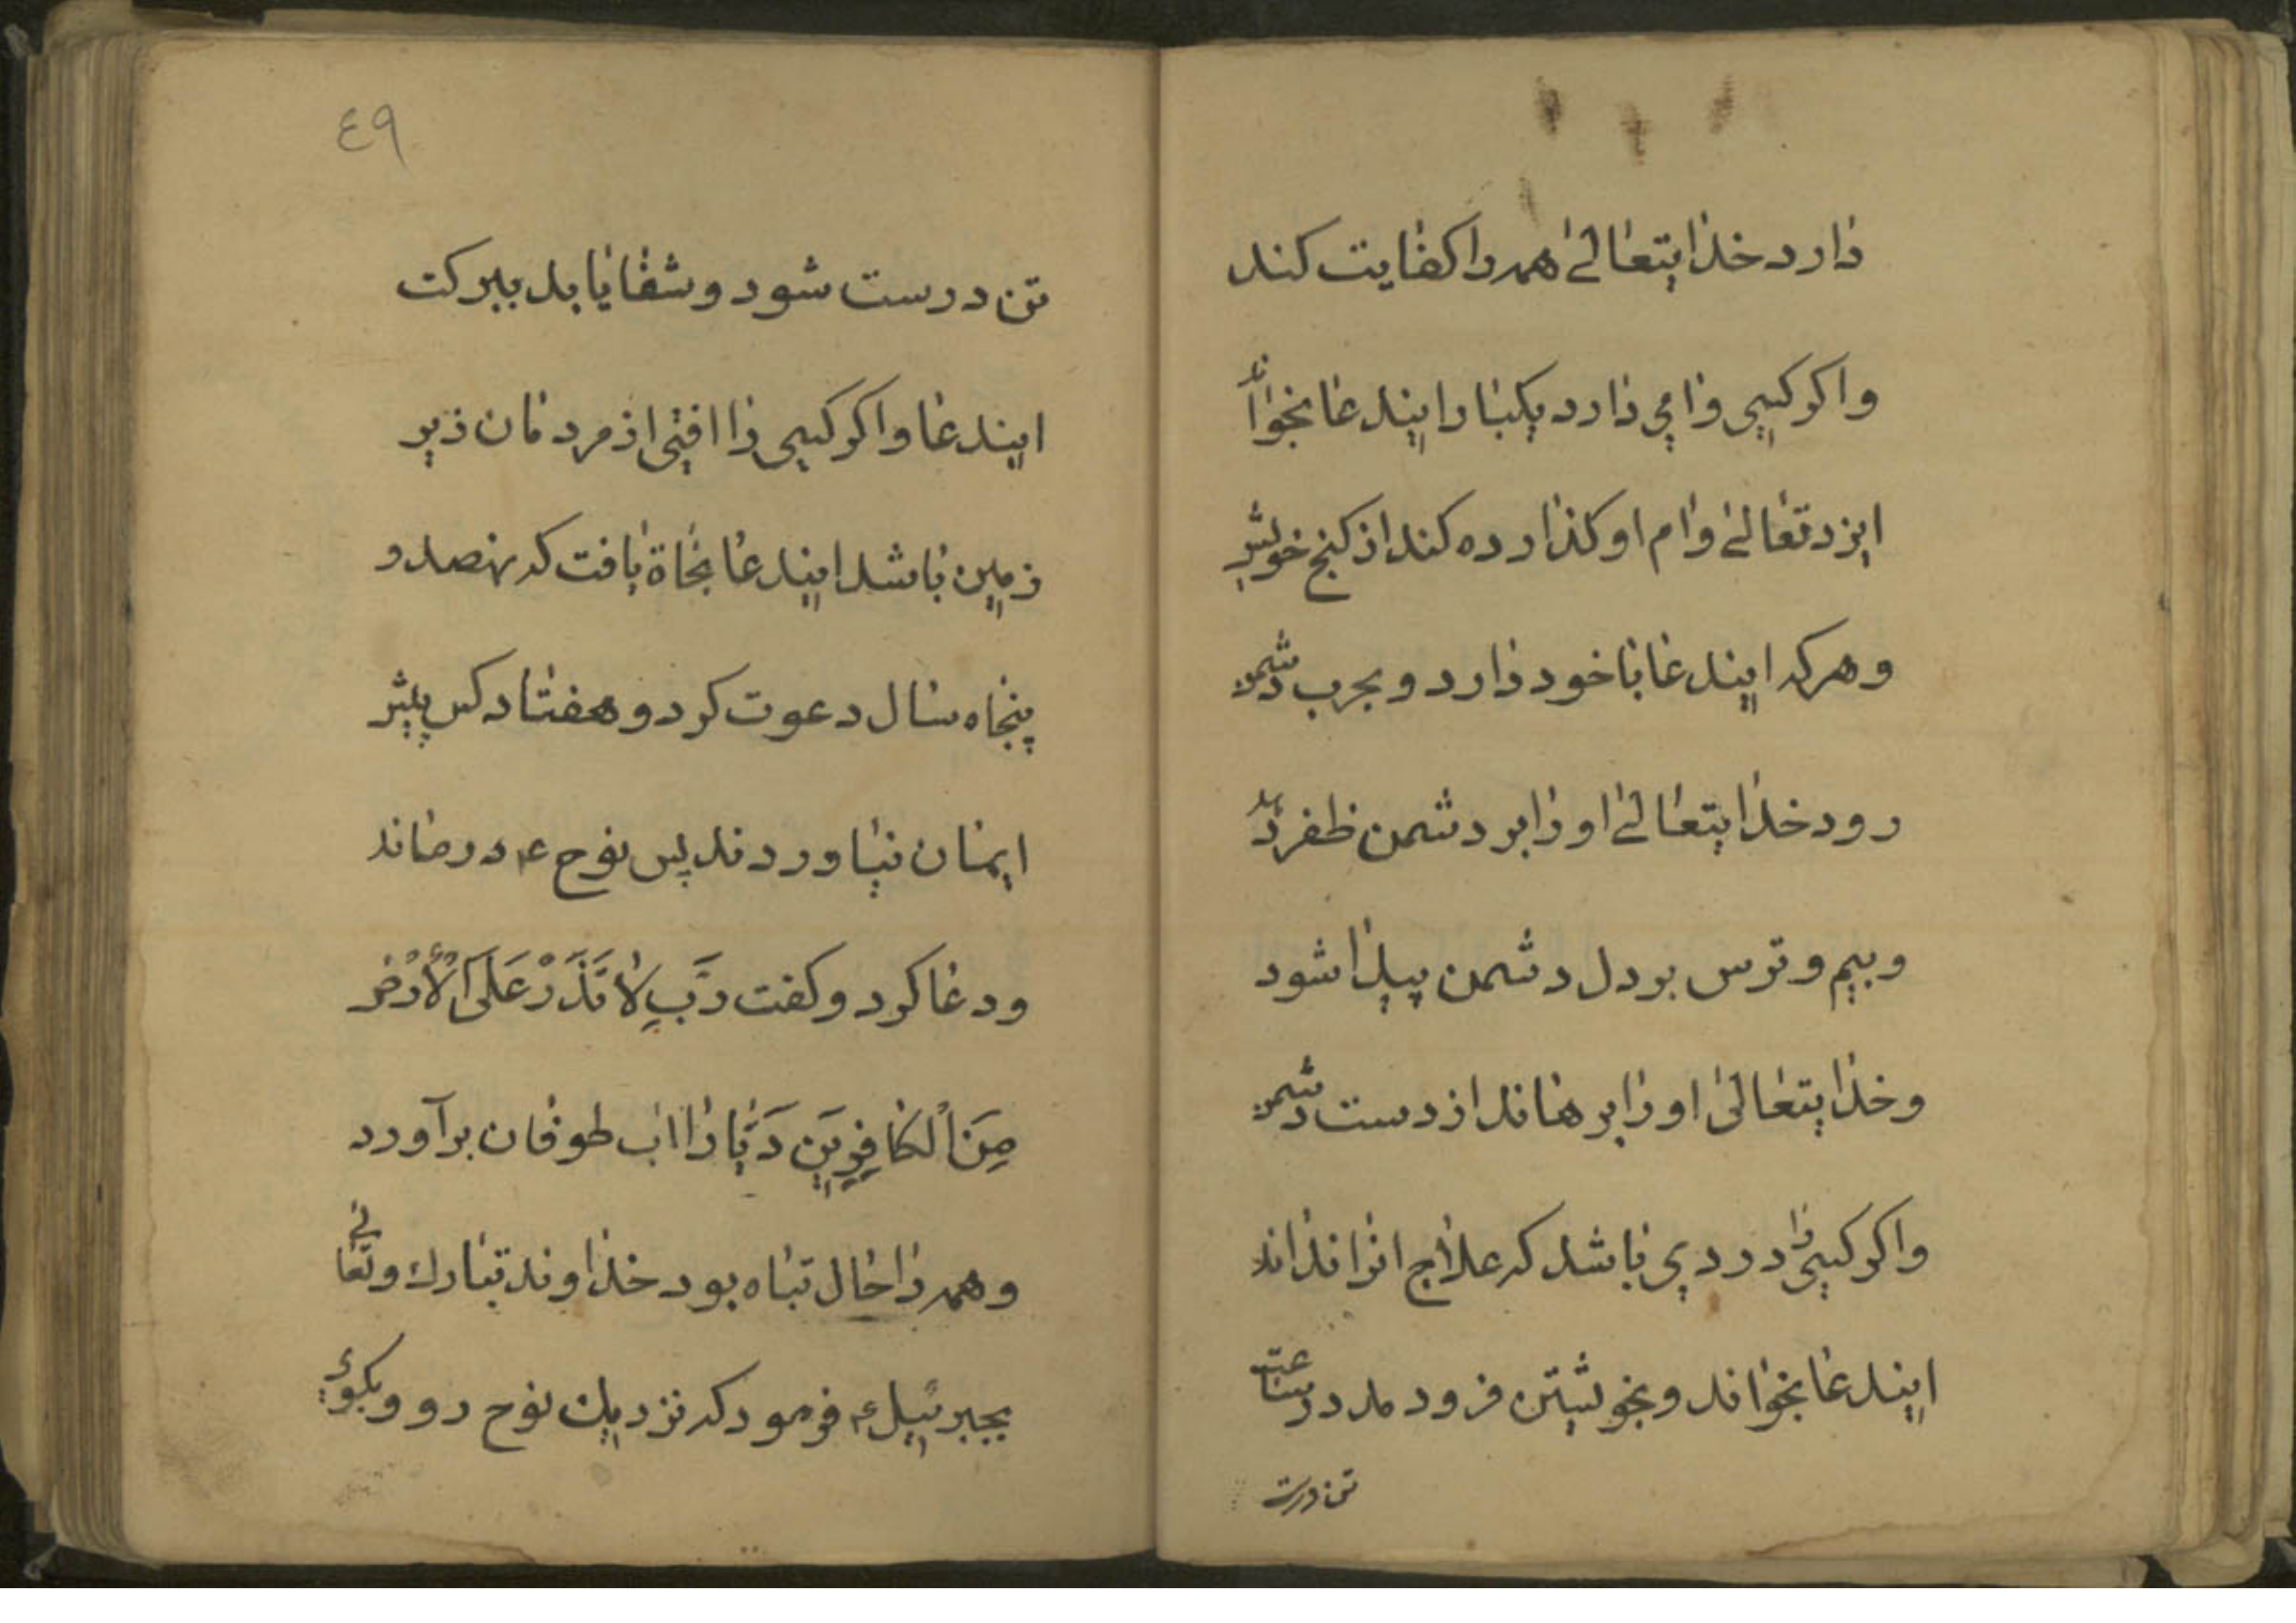 دارد خدایتعالی همه را کفایت کند
واکر کسی وامی دارد یکبار ایندعا بخواند
ایزد تعالی وام او کذارده کند از کنج خویش
وهرکه ایندعا با خود دارد و بحرب دشمن
رود خدایتعالی او را بر دشمن ظفر دهد
وبیم و ترس بر دل دشمن پیدا شود
وخدایتعالی او را برهاند از دست دشمن
واکر کسی را دردی باشد که علاج انرا نداند
ایندعا بخواند و بخویشتن فرود مد در ساعت
تن درست
٤٩
تن درست شود و شفا یابد ببرکت
ایندعا واکر کسی را افتی از مردمان زیر
زمین باشد ایندعا نجاة یافت که نهصد و
پنجاه سال دعوت کرد و هفتاد کس پیش
ایمان نیاوردند پس نوح ع در ماند
ودعا کرد و کفت رَّبِ لا تَذَرْ عَلَی الْأَرْضِ
مِنَ الْکافِرِینَ دَیّٰاراً اب طوفان برآورد
وهمه را حال تباه بود خداوند تبارك وتعالی
بجبرئیل ع فرمود که نزدیك نوح رو وبکوی